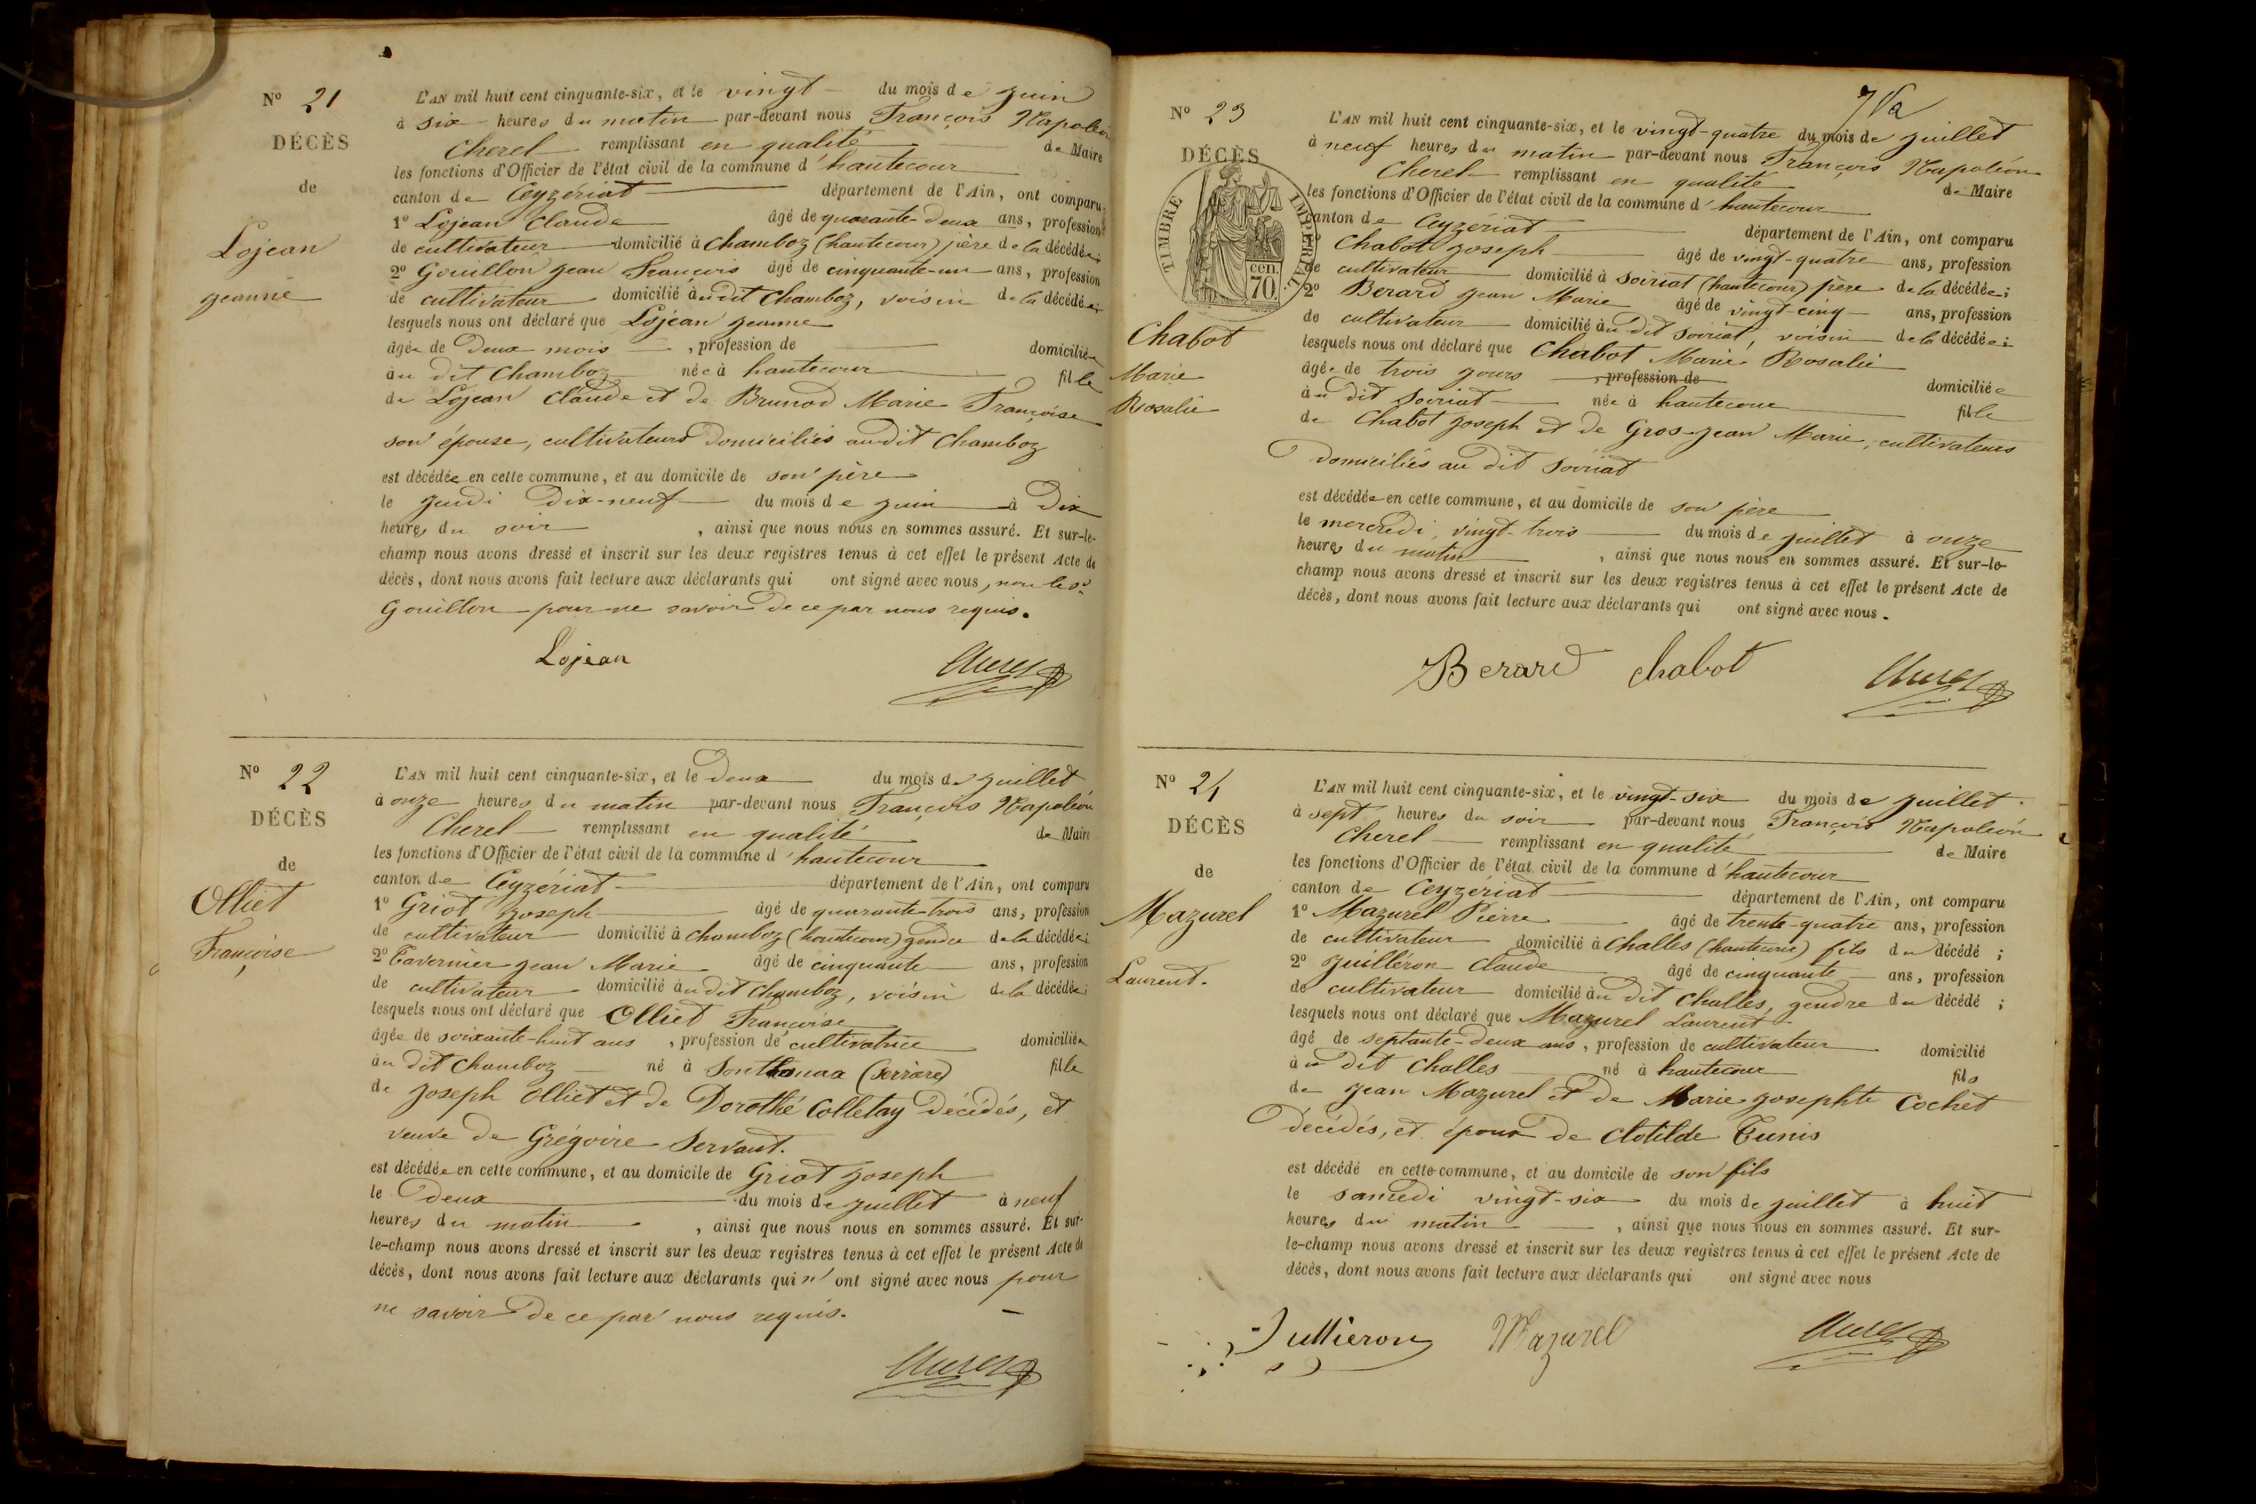 Nº 21
DÉCÈS
de
Lojean
jeanne
L'AN mil huit cent cinquante-six, et le vingt du mois de juin
à six heures du matin par-devant nous François Napoléon
Cherel remplissant en qualité de Maire
les fonctions d'Officier de l'état civil de la commune d'hautecour
canton de Ceyzériat département de l'Ain, ont comparu
1º Lojean Claude âgé de quarante-deux ans, profession
de cultivateur domicilié à Chamboz (hautecour) père de la décédée;
2º Gouillon jean François âgé de cinquante-un ans, profession
de cultivateur domicilié au dit Chamboz, voisin de la décédée;
lesquels nous ont déclaré que Lojean jeanne
âgée de deux mois , profession de domiciliée
au dit Chamboz née à hautecour fille
de Lojean Claude et de Brunod Marie Françoise
son épouse, cultivateurs domiciliés audit Chamboz
est décédée en cette commune, et au domicile de son père
le jeudi dix-neuf du mois de juin à dix
heures du soir , ainsi que nous nous en sommes assuré. Et sur-le-
champ nous avons dressé et inscrit sur les deux registres tenus à cet effet le présent Acte de
décès, dont nous avons fait lecture aux déclarants qui ont signé avec nous, non le sr.
Gouillon pour ne savoir de ce par nous requis.
Lojean
Cherel
Nº 22
DÉCÈS
de
Olliet
Françoise
L'AN mil huit cent cinquante-six, et le deux du mois de juillet
à onze heures du matin par-devant nous François Napoléon
Cherel remplissant en qualité de Maire
les fonctions d'Officier de l'état civil de la commune d'hautecour
canton de Ceyzériat département de l'Ain, ont comparu
1º Griot joseph âgé de quarante-trois ans, profession
de cultivateur domicilié à Chamboz (hautecour) gendre de la décédée;
2º Tavernier jean Marie âgé de cinquante ans, profession
de cultivateur domicilié au dit Chamboz, voisin de la décédée;
lesquels nous ont déclaré que Olliet Françoise
âgée de soixante-huit ans , profession de cultivatrice domiciliée
au dit Chamboz né à Sonthonax (Serrières) fille
de joseph Olliet et de Dorothé Colletay décédés, et
veuve de Grégoire Servant.
est décédée en cette commune, et au domicile de Griot joseph
le deux du mois de juillet à neuf
heures du matin , ainsi que nous nous en sommes assuré. Et sur-
le-champ nous avons dressé et inscrit sur les deux registres tenus à cet effet le présent Acte de
décès, dont nous avons fait lecture aux déclarants qui n'ont signé avec nous pour
ne savoir de ce par nous requis.
Cherel
Nº 23
DÉCÈS
TIMBRE IMPÉRIAL.
cen.
70
Chabot
Marie
Rosalie
L'AN mil huit cent cinquante-six, et le vingt-quatre du mois de juillet
à neuf heures du matin par-devant nous François Napoléon
Cherel remplissant en qualité de Maire
les fonctions d'Officier de l'état civil de la commune d'hautecour
canton de Ceyzériat département de l'Ain, ont comparu
Chabot joseph âgé de vingt-quatre ans, profession
de cultivateur domicilié à Soiriat (hautecour) père de la décédée;
2º Berard jean Marie âgé de vingt-cinq ans, profession
de cultivateur domicilié au dit Soiriat, voisin de la décédée;
lesquels nous ont déclaré que Chabot Marie Rosalie
âgée de trois jours , profession de domiciliée
au dit Soiriat née à hautecour fille
de Chabot joseph et de Gros-jean Marie, cultivateurs
domiciliés au dit Soiriat
est décédée en cette commune, et au domicile de son père
le mercredi, vingt-trois du mois de juillet à onze
heures du matin , ainsi que nous nous en sommes assuré. Et sur-le-
champ nous avons dressé et inscrit sur les deux registres tenus à cet effet le présent Acte de
décès, dont nous avons fait lecture aux déclarants qui ont signé avec nous.
Berard Chabot Cherel
Nº 24
DÉCÈS
de
Mazurel
Laurent.
L'AN mil huit cent cinquante-six, et le vingt-six du mois de juillet
à sept heures du soir par-devant nous François Napoléon
Cherel remplissant en qualité de Maire
les fonctions d'Officier de l'état civil de la commune d'hautecour
canton de Ceyzériat département de l'Ain, ont comparu
1º Mazurel Pierre âgé de trente-quatre ans, profession
de cultivateur domicilié à Challes (hautecour) fils du décédé ;
2º juilléron Claude âgé de cinquante ans, profession
de cultivateur domicilié au dit Challes, gendre du décédé ;
lesquels nous ont déclaré que Mazurel Laurent
âgé de septante-deux ans, profession de cultivateur domicilié
au dit Challes né à hautecour fils
de jean Mazurel et de Marie josephte Cochet
décédés, et époux de Clotilde Tunis
est décédé en cette commune, et au domicile de son fils
le samedi vingt-six du mois de juillet à huit
heures du matin , ainsi que nous nous en sommes assuré. Et sur-
le-champ nous avons dressé et inscrit sur les deux registres tenus à cet effet le présent Acte de
décès, dont nous avons fait lecture aux déclarants qui ont signé avec nous
Jullieron Mazurel Cherel